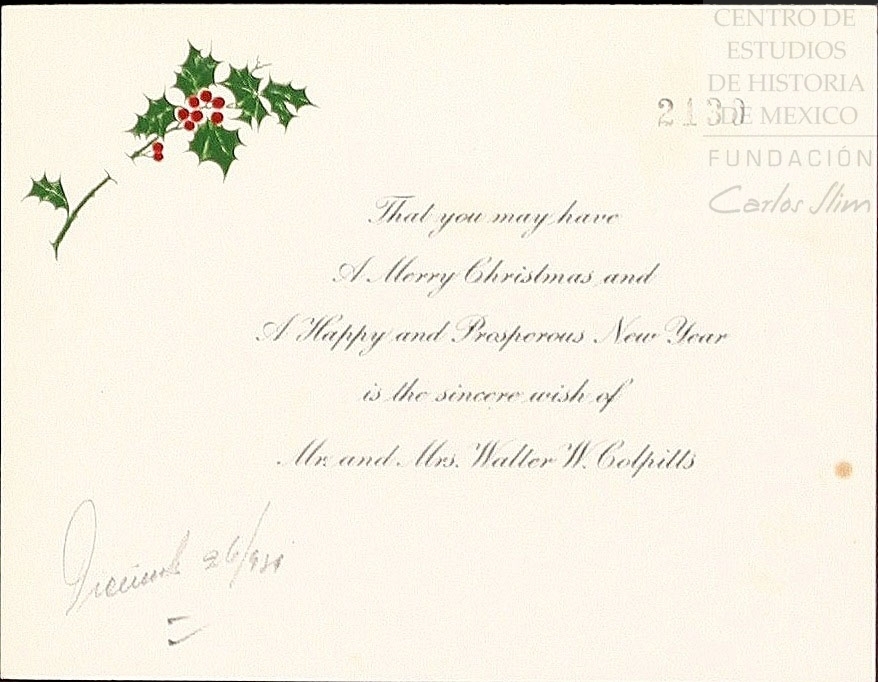 CENTRO DE
ESTUDIOS
DE HISTORIA
DE MEXICO
FUNDACIÓN
Carlos Slim
2130
That you may have
A Merry Christmas and
A Happy and Prosperous New Year
is the sincere wish of
Mr. and Mrs. Walter W. Colpitts
26/